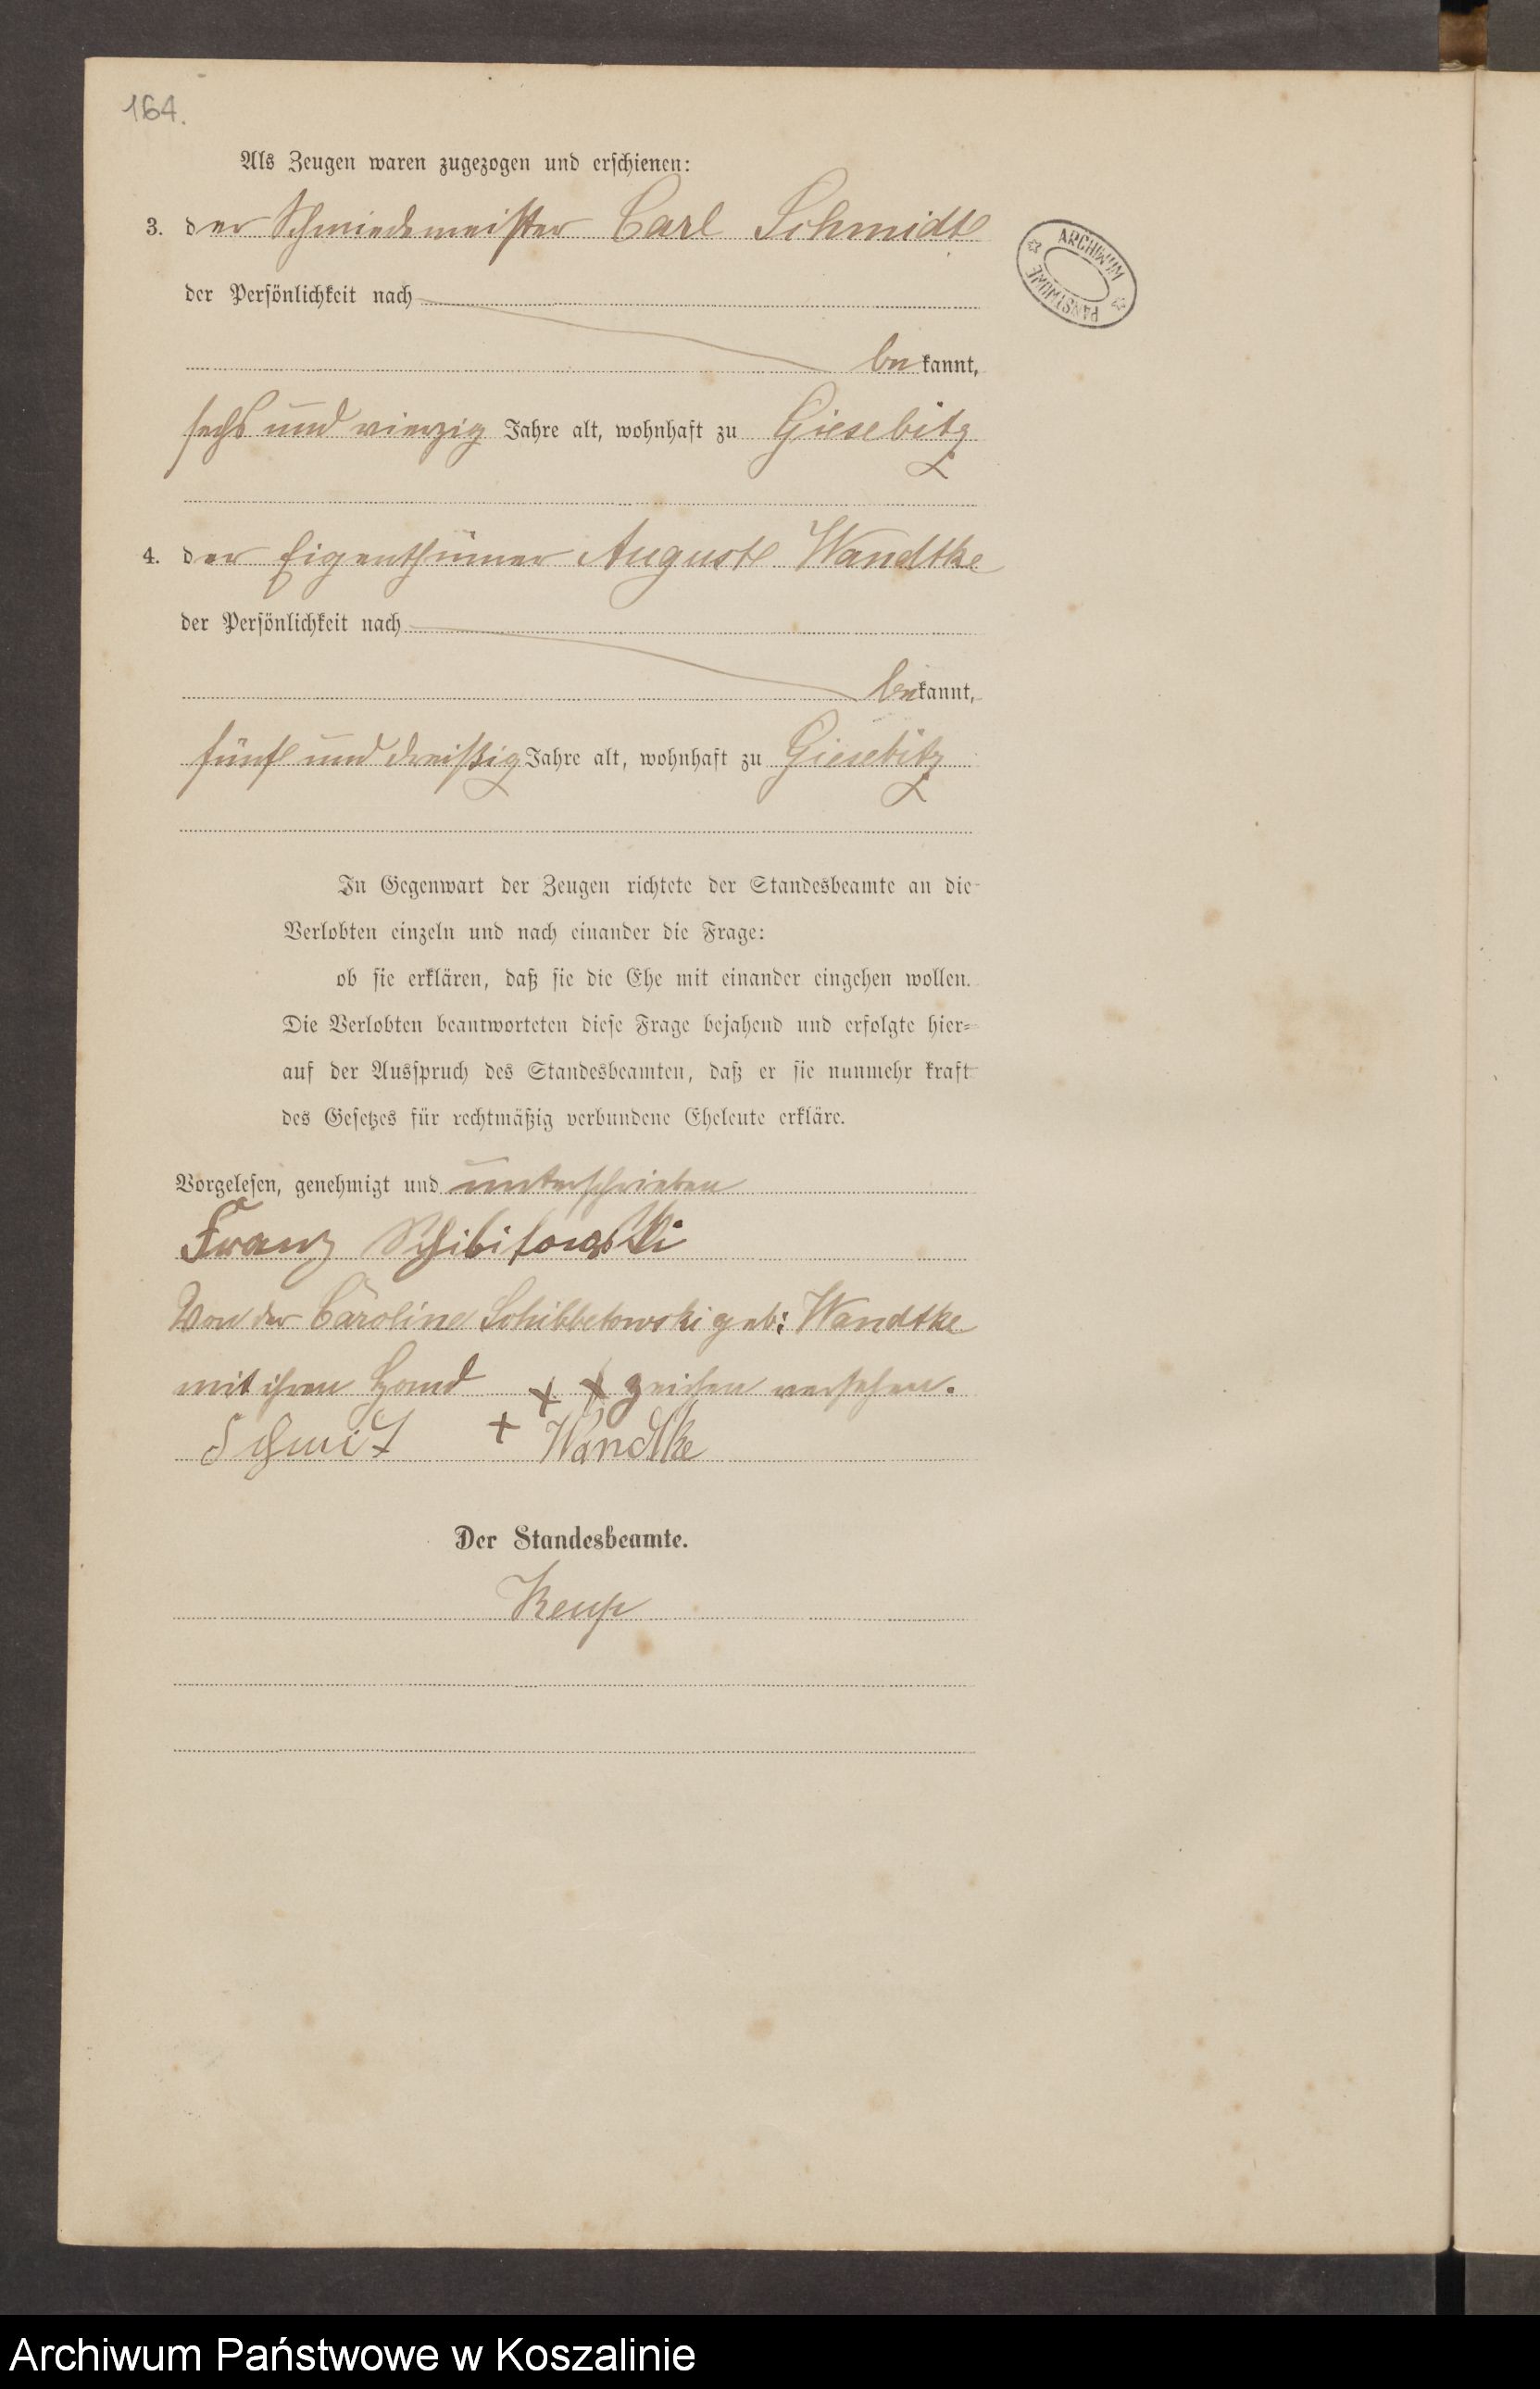 164.
Als Zeugen waren zugezogen und erschienen:
3. der Schmiedemeister Carl Schmidt
ARCHIWUM PAŃSTWOWE
der Persönlichkeit nach
bekannt,
sechs und vierzig Jahre alt, wohnhaft zu Giesebitz
4. der Eigenthümer August Wandtke
der Persönlichkeit nach
bekannt,
fünf und dreißig Jahre alt, wohnhaft zu Giesebitz
In Gegenwart der Zeugen richtete der Standesbeamte an die
Verlobten einzeln und nach einander die Frage:
ob sie erklären, daß sie die Ehe mit einander eingehen wollen.
Die Verlobten beantworteten diese Frage bejahend und erfolgte hier-
auf der Ausspruch des Standesbeamten, daß er sie nunmehr kraft
des Gesetzes für rechtmäßig verbundene Eheleute erkläre.
Vorgelesen, genehmigt und unterschrieben
Franz Schibitowski
Von der Caroline Schibbetowski geb: Wandtke
mit ihren Hand + + zeichen versehen.
Schmit + Wandtke
Der Standesbeamte.
Keup
Archiwum Państwowe w Koszalinie